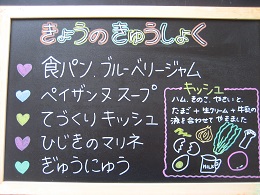 きょうの きゅうしょく
食パン、ブルーベリージャム
ペイザンヌ スープ
てづくり キッシュ
ひじきの マリネ
ぎゅうにゅう
キッシュ
ハム、きのこ、やさいと、
たまご + 生クリーム + 牛乳の
液を合わせて やきました
MILK